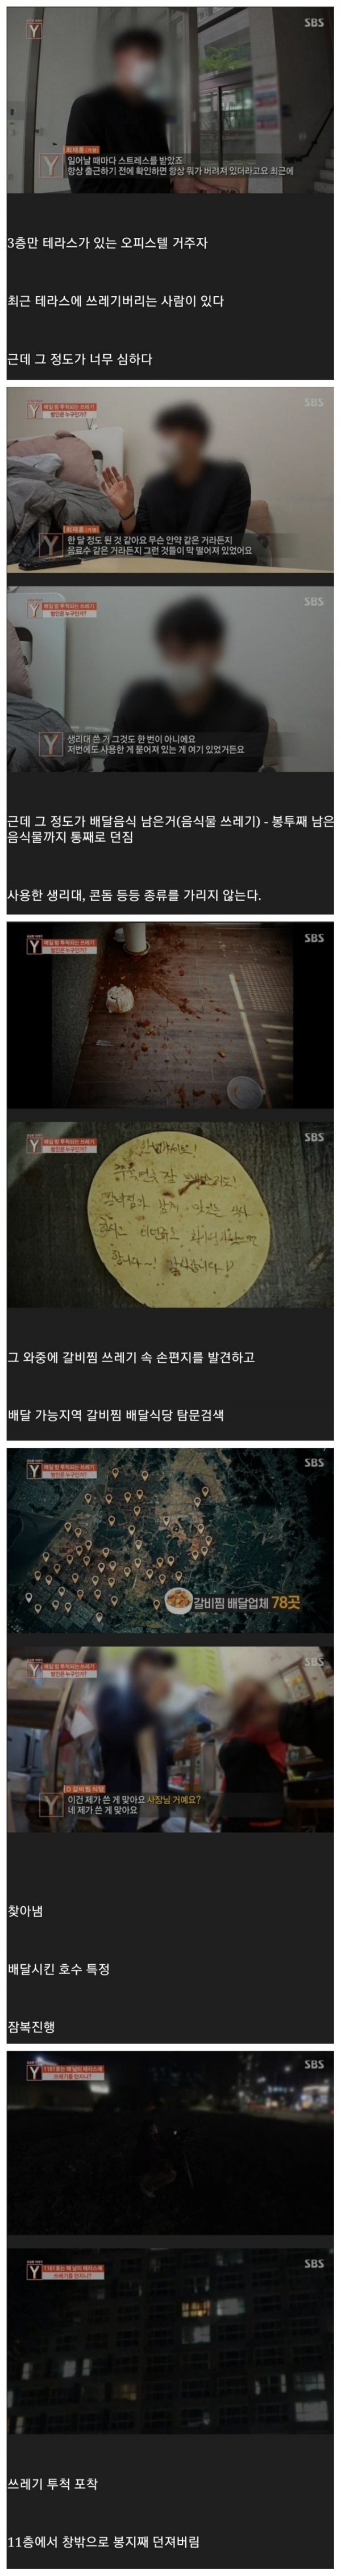 SBS
Y
최재훈(가명)
일어날 때마다 스트레스를 받았죠
항상 출근하기 전에 확인하면 항상 뭐가 버려져 있더라고요 최근에
3층만 테라스가 있는 오피스텔 거주자
최근 테라스에 쓰레기버리는 사람이 있다
근데 그 정도가 너무 심하다
SBS
Y
매일 밤 투척되는 쓰레기
범인은 누구인가?
최재훈(가명)
한 달 정도 된 것 같아요 무슨 안약 같은 거라든지
음료수 같은 거라든지 그런 것들이 막 떨어져 있었어요
SBS
Y
매일 밤 투척되는 쓰레기
범인은 누구인가?
생리대 쓴 거 그것도 한 번이 아니에요
저번에도 사용한 게 묻어져 있는 게 여기 있었거든요
근데 그 정도가 배달음식 남은거(음식물 쓰레기) - 봉투째 남은
음식물까지 통째로 던짐
사용한 생리대, 콘돔 등등 종류를 가리지 않는다.
SBS
Y
매일 밤 투척되는 쓰레기
범인은 누구인가?
SBS
Y
매일 밤 투척되는 쓰레기
범인은 누구인가?
그 와중에 갈비찜 쓰레기 속 손편지를 발견하고
배달 가능지역 갈비찜 배달식당 탐문검색
SBS
Y
매일 밤 투척되는 쓰레기
범인은 누구인가?
갈비찜 배달업체 78곳
SBS
Y
매일 밤 투척되는 쓰레기
범인은 누구인가?
D 갈비찜 식당
이건 제가 쓴 게 맞아요 사장님 거예요?
네 제가 쓴 게 맞아요
찾아냄
배달시킨 호수 특정
잠복진행
SBS
Y
쓰레기를 던지나?
SBS
Y
쓰레기를 던지나?
쓰레기 투척 포착
11층에서 창밖으로 봉지째 던져버림